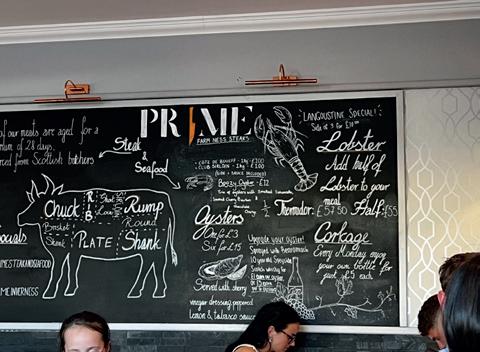 PRIME
FARM NESS STEAKS
of our meats are aged for a
of 28 days.
Scottish butchers
Steak
&
Seafood
Chuck
Rib
Loin
Rump
Round
Brisket
Shank
PLATE
Shank
ocials
MESTEAKANDSEAFOOD
MEINVERNESS
COTE DE BOEUFF - 1kg - £100
CLUB SIRLOIN - 1kg - £100
Boozy Oyster - £12
Oysters
One for £3
Six for £15
Upgrade your oyster!
10 year Speyside
Served with sherry
vinegar dressing,
Lemon & tabasco sauce
LANGOUSTINE SPECIAL!
Side of 3 for £10
Lobster
Add half of
Lobster to your
meal
½ Thermidor: £57.50 Half: £55
Corkage
Every Monday enjoy
your own bottle for
just £5 each.